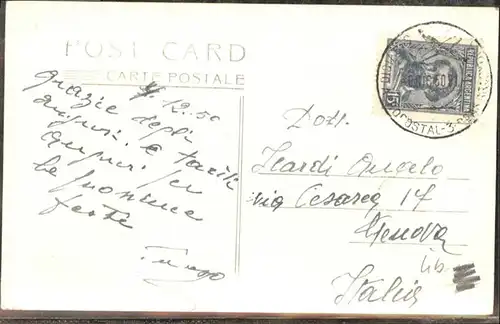 POST CARD
CARTE POSTALE
4. 12. 50
grazie degli
auguri e tanti
auguri per
le prossime
feste
Dott.
Nardi Angelo
via Cesarea 17
Genova
Italia
REPUBLICA ARGENTINA
15
POSTAL-3-